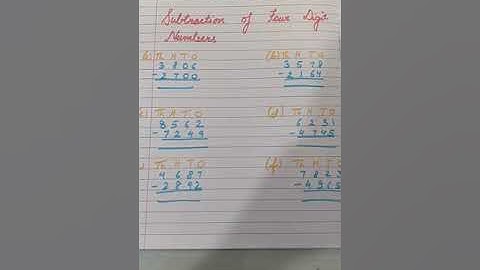 Subtraction of Four Digit
Numbers
Th H T O
3 8 0 6
- 2 7 0 0
(b) Th H T O
3 5 7 8
- 2 1 6 4
Th H T O
8 5 6 2
- 7 2 4 9
(d) Th H T O
6 2 3 1
- 4 7 4 5
Th H T O
4 6 8 7
- 2 8 9 2
(f) Th H T
7 8 2
- 4 9 6